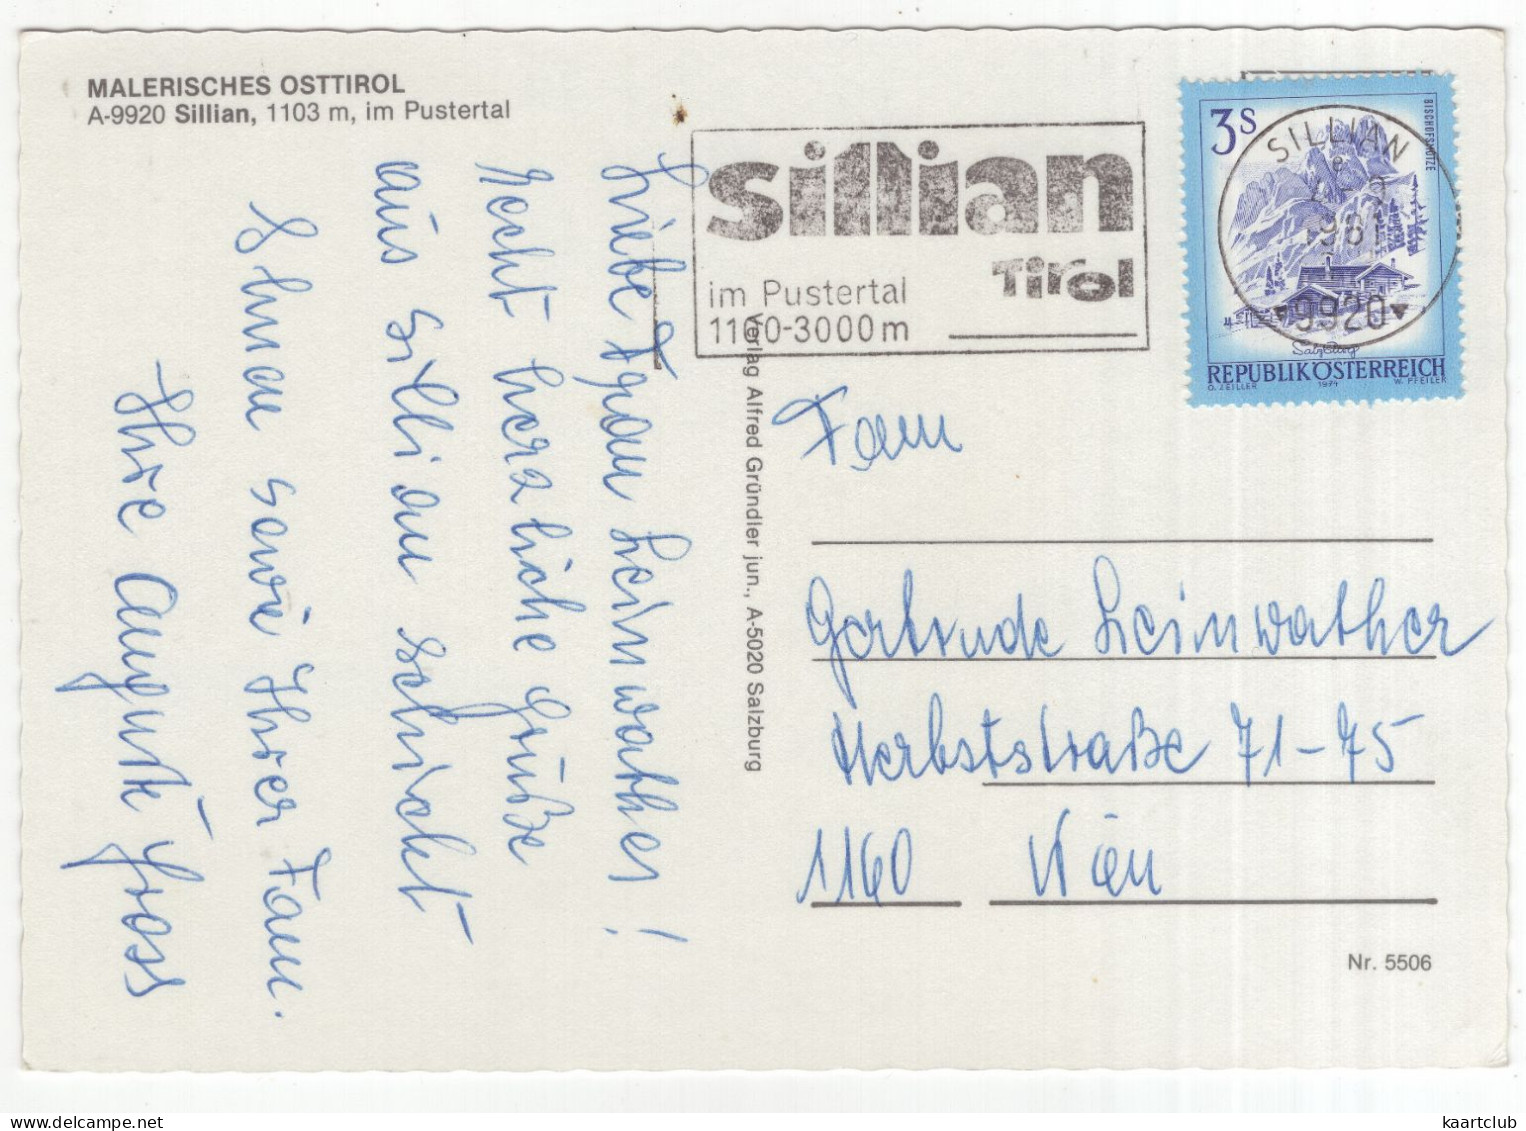 MALERISCHES OSTTIROL
A-9920 Sillian, 1103 m, im Pustertal
Liebe Frau Leinwather!
Recht herzliche Grüße
aus Sillian schickt
Ihnen sowie Ihrer Fam.
Ihre August Gross
Verlag Alfred Gründler jun., A-5020 Salzburg
sillian
Tirol
im Pustertal
1100-3000 m
3S
BISCHOFSMÜTZE
SILLIAN
9920
Salzburg
REPUBLIK ÖSTERREICH
O. ZEILLER 1974 W. PFEILER
Fam
Gertrude Leinwather
Herbststraße 71-75
1160 Wien
Nr. 5506
kaartclub